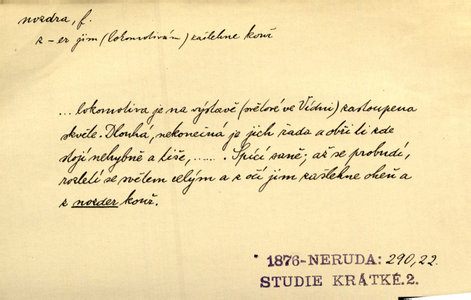 nozdra, f.
z -er jim (lokomotivám) zašlehne kouř
... lokomotiva je na výstavě (světové ve Vídni) zastoupena
skvěle. Dlouhá, nekonečná je jich řada a obři ti zde
stojí nehybně a tiše, ...... Spící saně; až se probudí,
rozletí se světem celým a z očí jim zašlehne oheň a
z nozder kouř.
1876-NERUDA: 290,22.
STUDIE KRÁTKÉ.2.